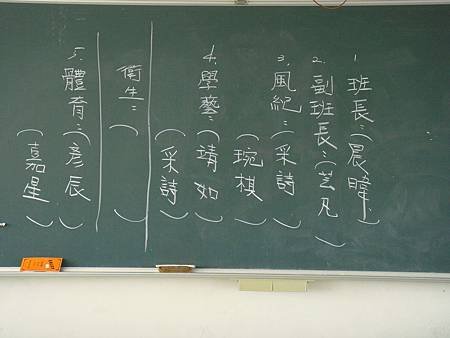 1. 班長：（晨暐）
2. 副班長：（芸凡）
3. 風紀：（采詩）
（琬棋）
4. 學藝：（靖如）
（采詩）
衛生：（ ）
5. 體育：（彥辰）
（嘉星）